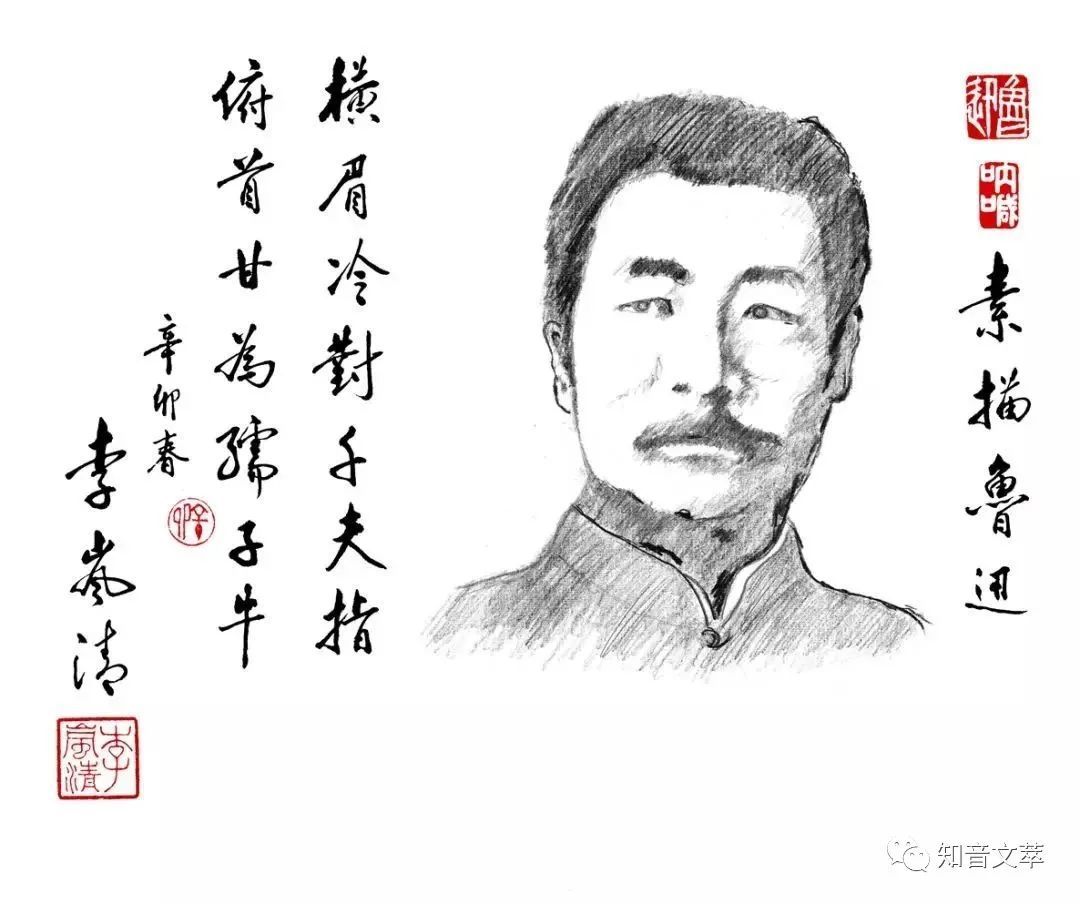 魯迅
吶喊
素描魯迅
橫眉冷對千夫指
俯首甘為孺子牛
辛卯春
李嵐清
李嵐清
知音文萃